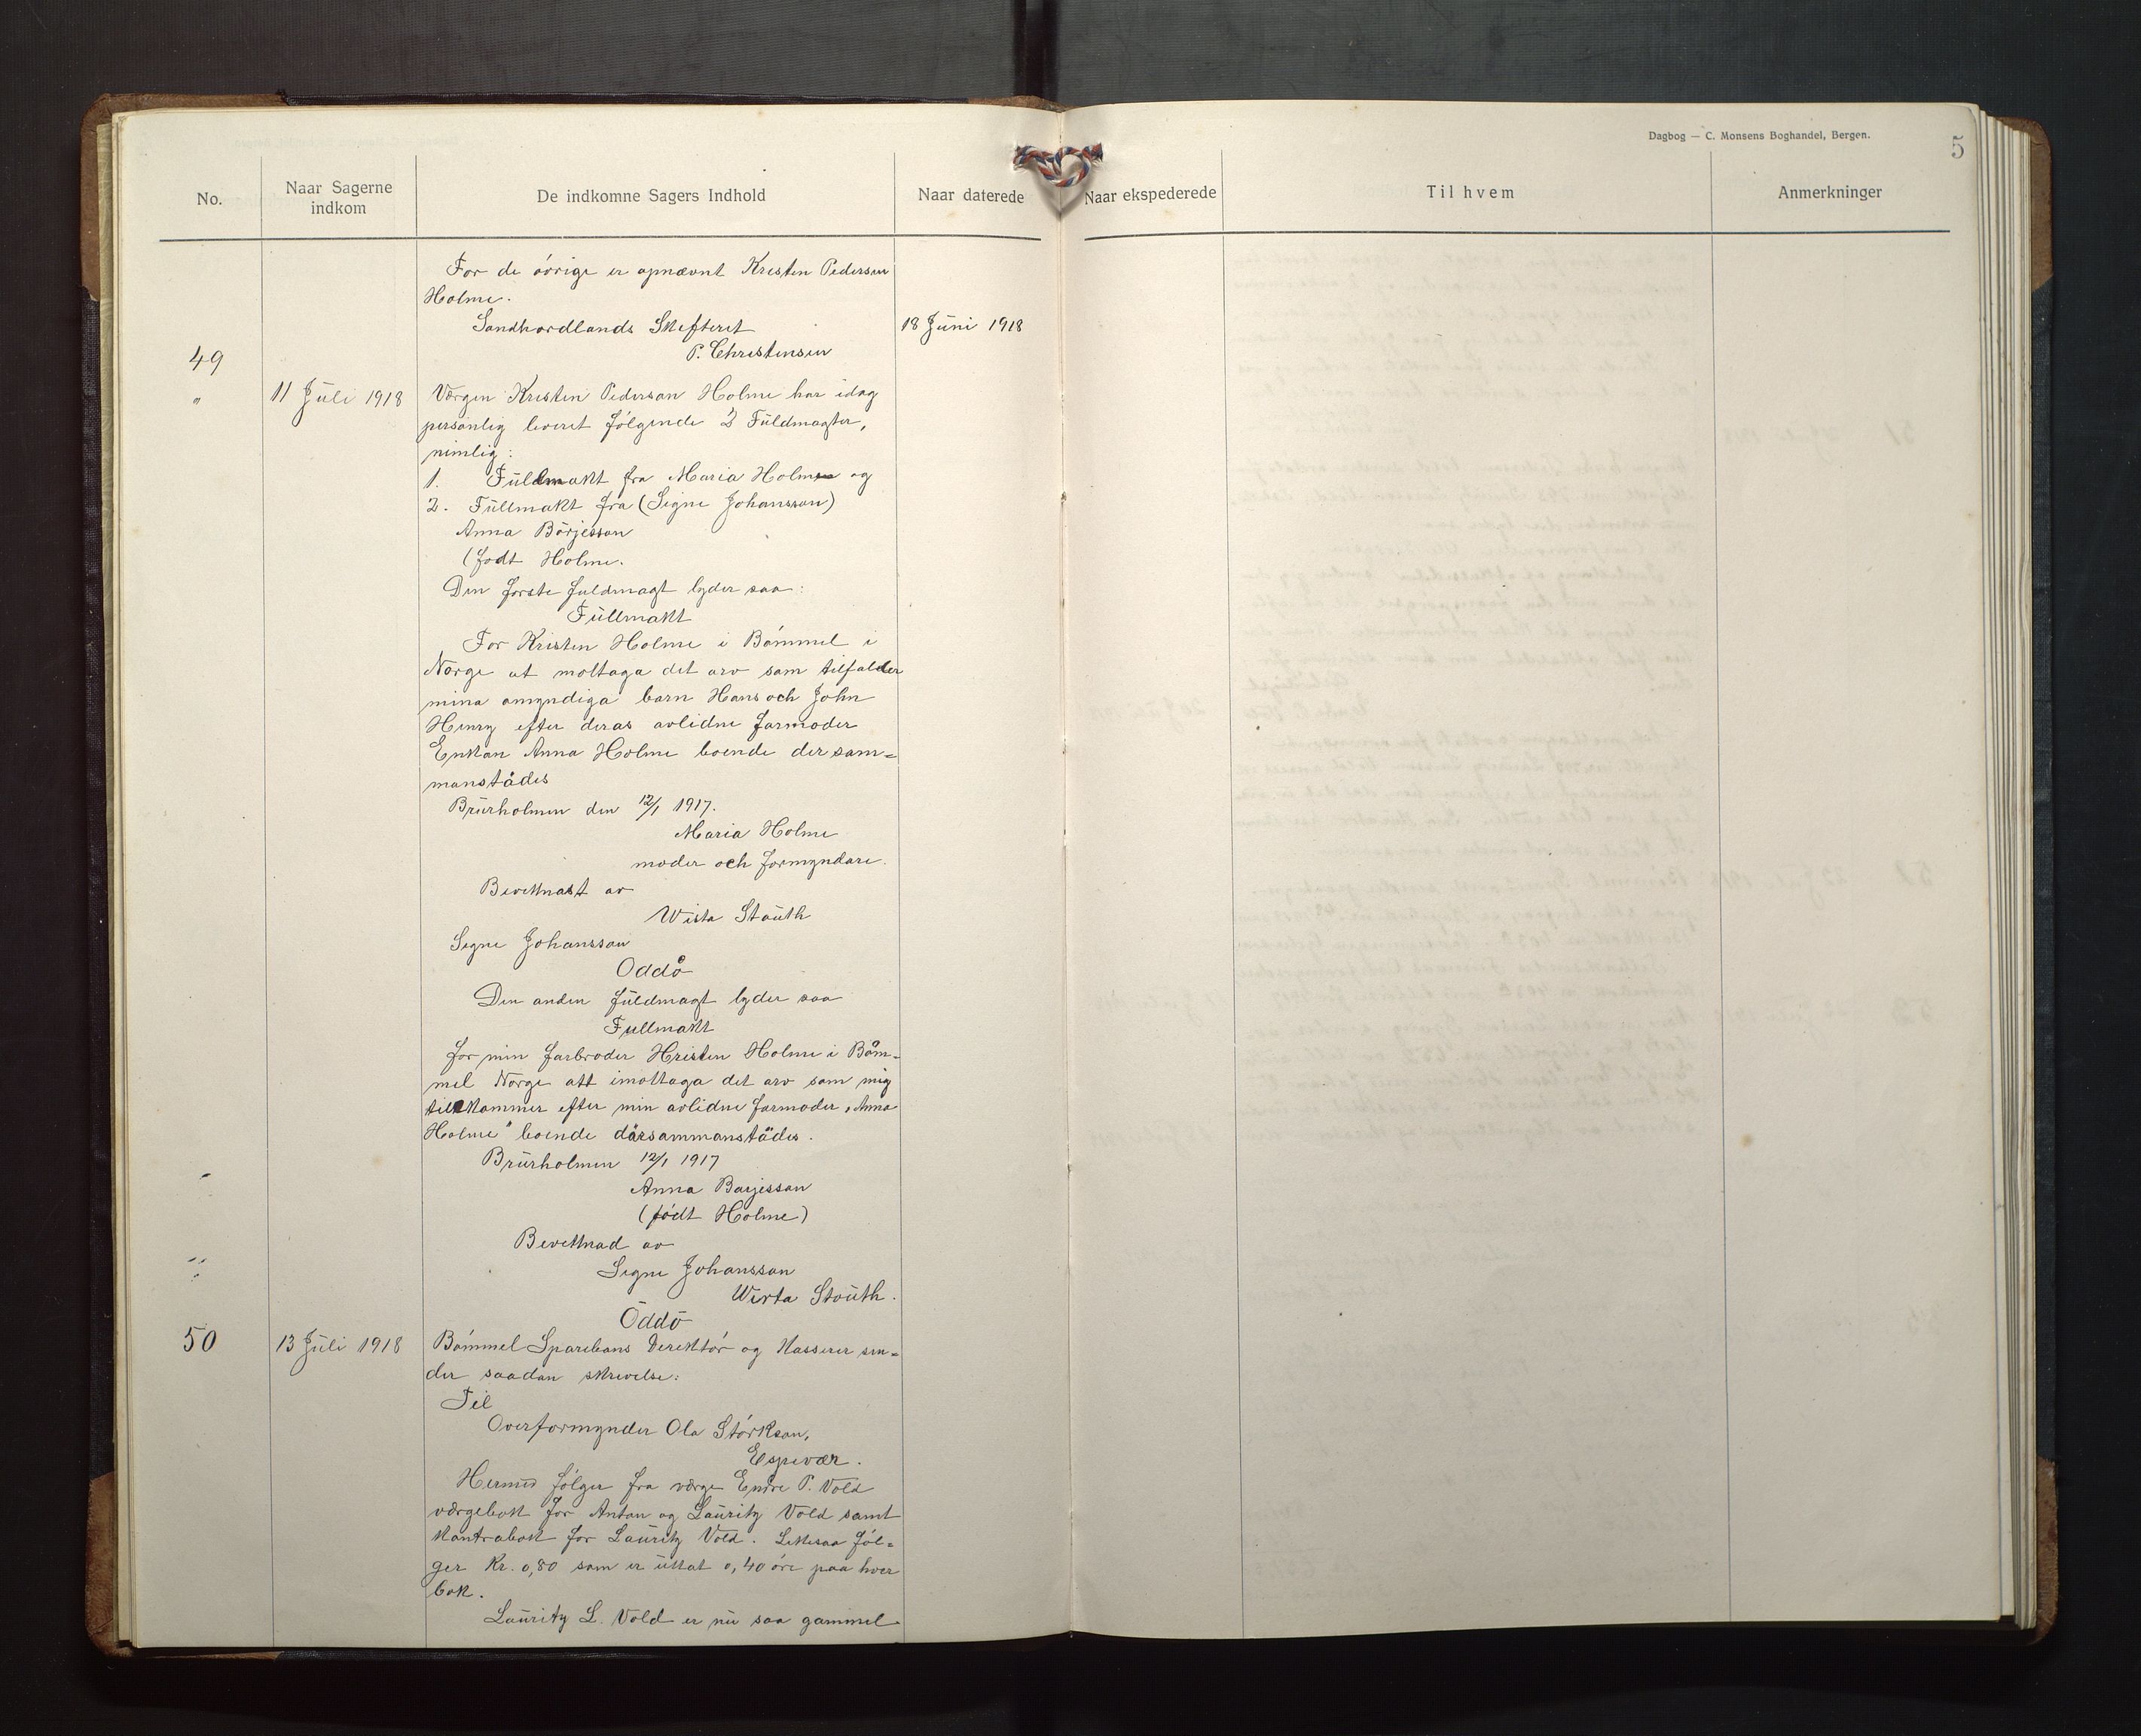 Dagbog — C. Monsens Boghandel, Bergen.
5
No.
Naar Sagerne indkom
De indkomne Sagers Indhold
Naar daterede
Naar ekspederede
Til hvem
Anmerkninger
For de óvrige er opnævnt Kristen Pedersen
Holme.
Søndhordlands Skifteret
18 Juni 1918
P. Christensen
49
" 11 Juli 1918 Værgen Kristen Pedersen Holme har idag
personlig leveret fólgende 2 Fuldmagter,
nimlig:
1. Fuldmakt fra Maria Holme og
2. Fullmakt fra (Signe Johansson)
Anna Börjesson
(fodt Holme.
Den forste fuldmagt lyder saa:
Fullmakt
For Kristen Holme i Bómmel i
Norge at mottaga det arv som tilfalder
mina omyndiga barn Hans och John
Henry efter deras avlidne farmoder
Enkan Anna Holme boende der sam=
manstädes
Brurholmen den 12/1 1917.
Maria Holme
moder och formyndare.
Bevittnast av
Wista Stouth
Signe Johansson
Oddö
Den anden fuldmagt lyder saa
Fullmakt
for min farbroder Kristen Holme i Böm=
mel Norge att imottaga det arv som mig
tillkommer efter min avlidne farmoder „Anna
Holme" boende därsammanstädes.
Brurholmen 12/1 1917
Anna Barjesson
(fódt Holme)
Bevittnad av
Signe Johansson
Wirta Stouth.
Oddö
50 13 Juli 1918 Bómmel Sparebans Direktór og Kasserer sen=
der saadan skrivelse:
Til
Overformynder Ola Stórkson,
Espevær.
Hermed fólger fra værge Endre P. Vold
værgebok for Anton og Lauritz Vold samt
kontrabok for Lauritz Vold. Likesaa fól=
ger Kr. 0,80 som er uttat 0,40 óre paa hver
bok.
Lauritz L. Vold er nu saa gammel